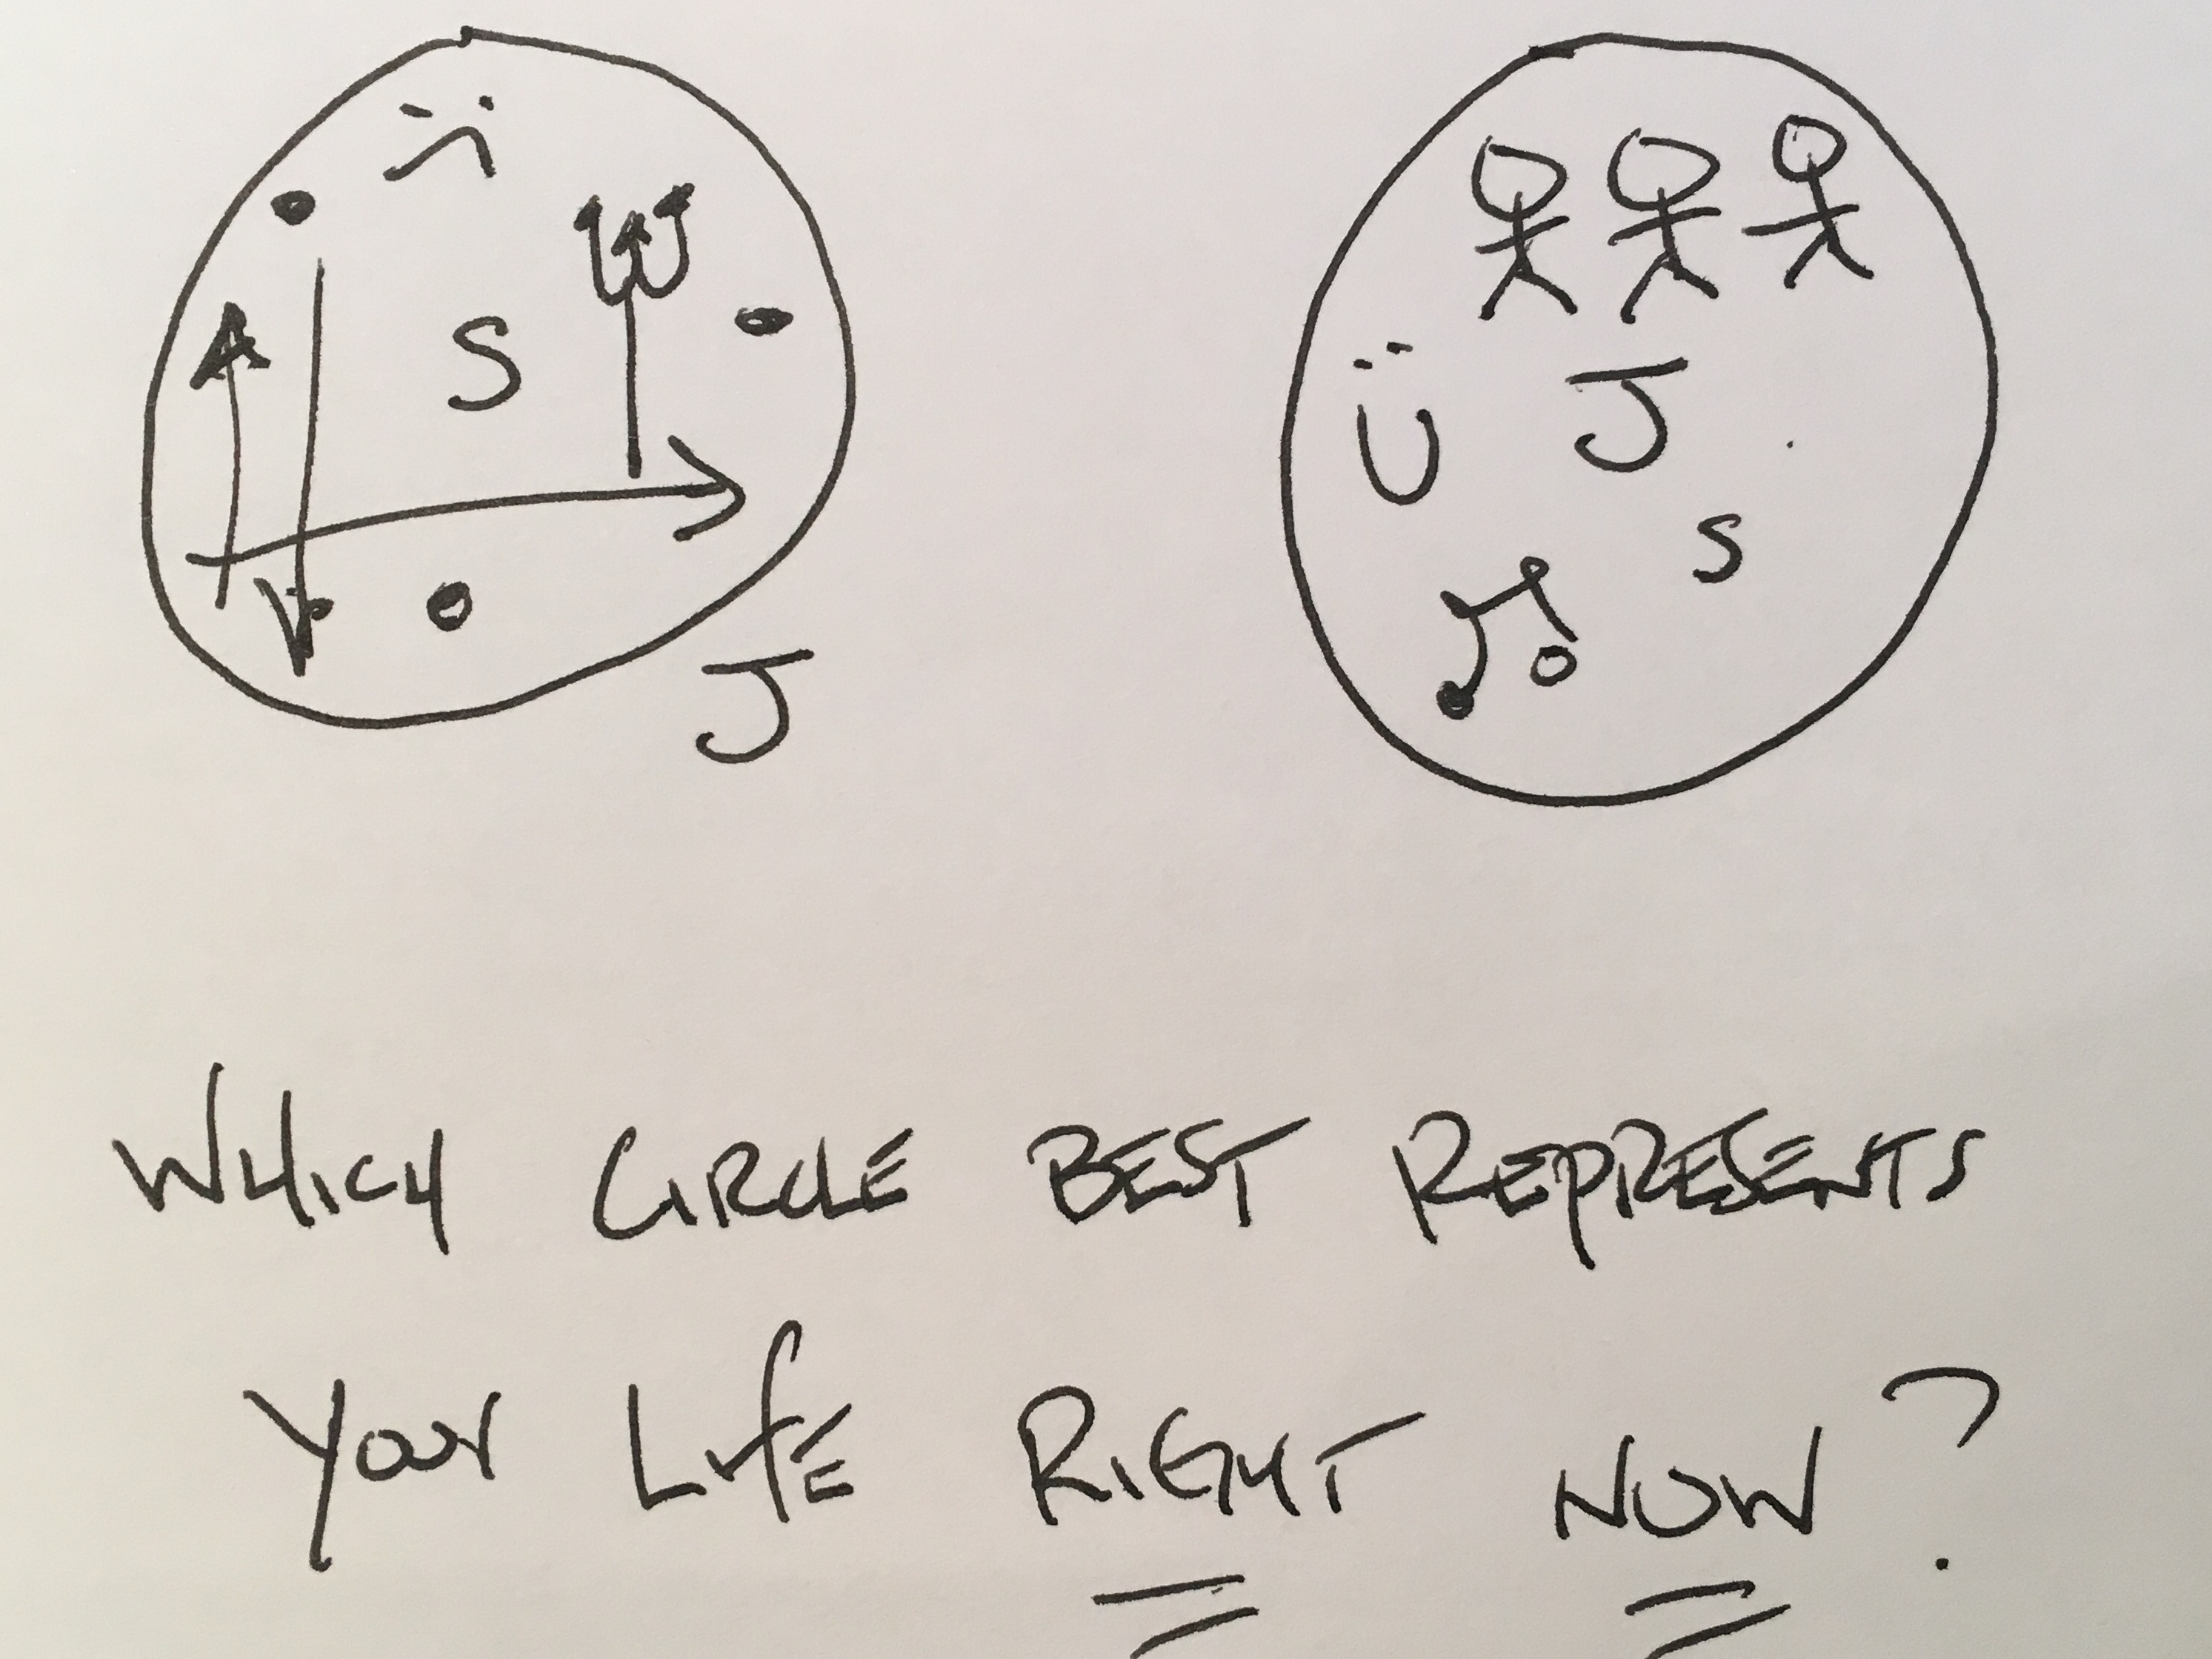 S
J
J
S
WHICH CIRCLE BEST REPRESENTS
YOUR LIFE RIGHT NOW?